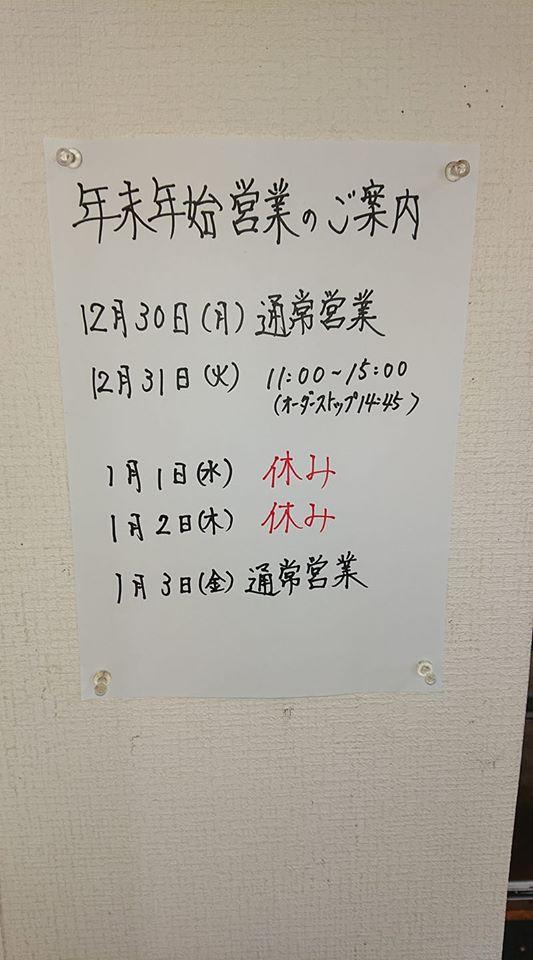 年末年始営業のご案内
12月30日(月) 通常営業
12月31日(火) 11:00~15:00
(オーダーストップ14:45)
1月1日(水) 休み
1月2日(木) 休み
1月3日(金) 通常営業